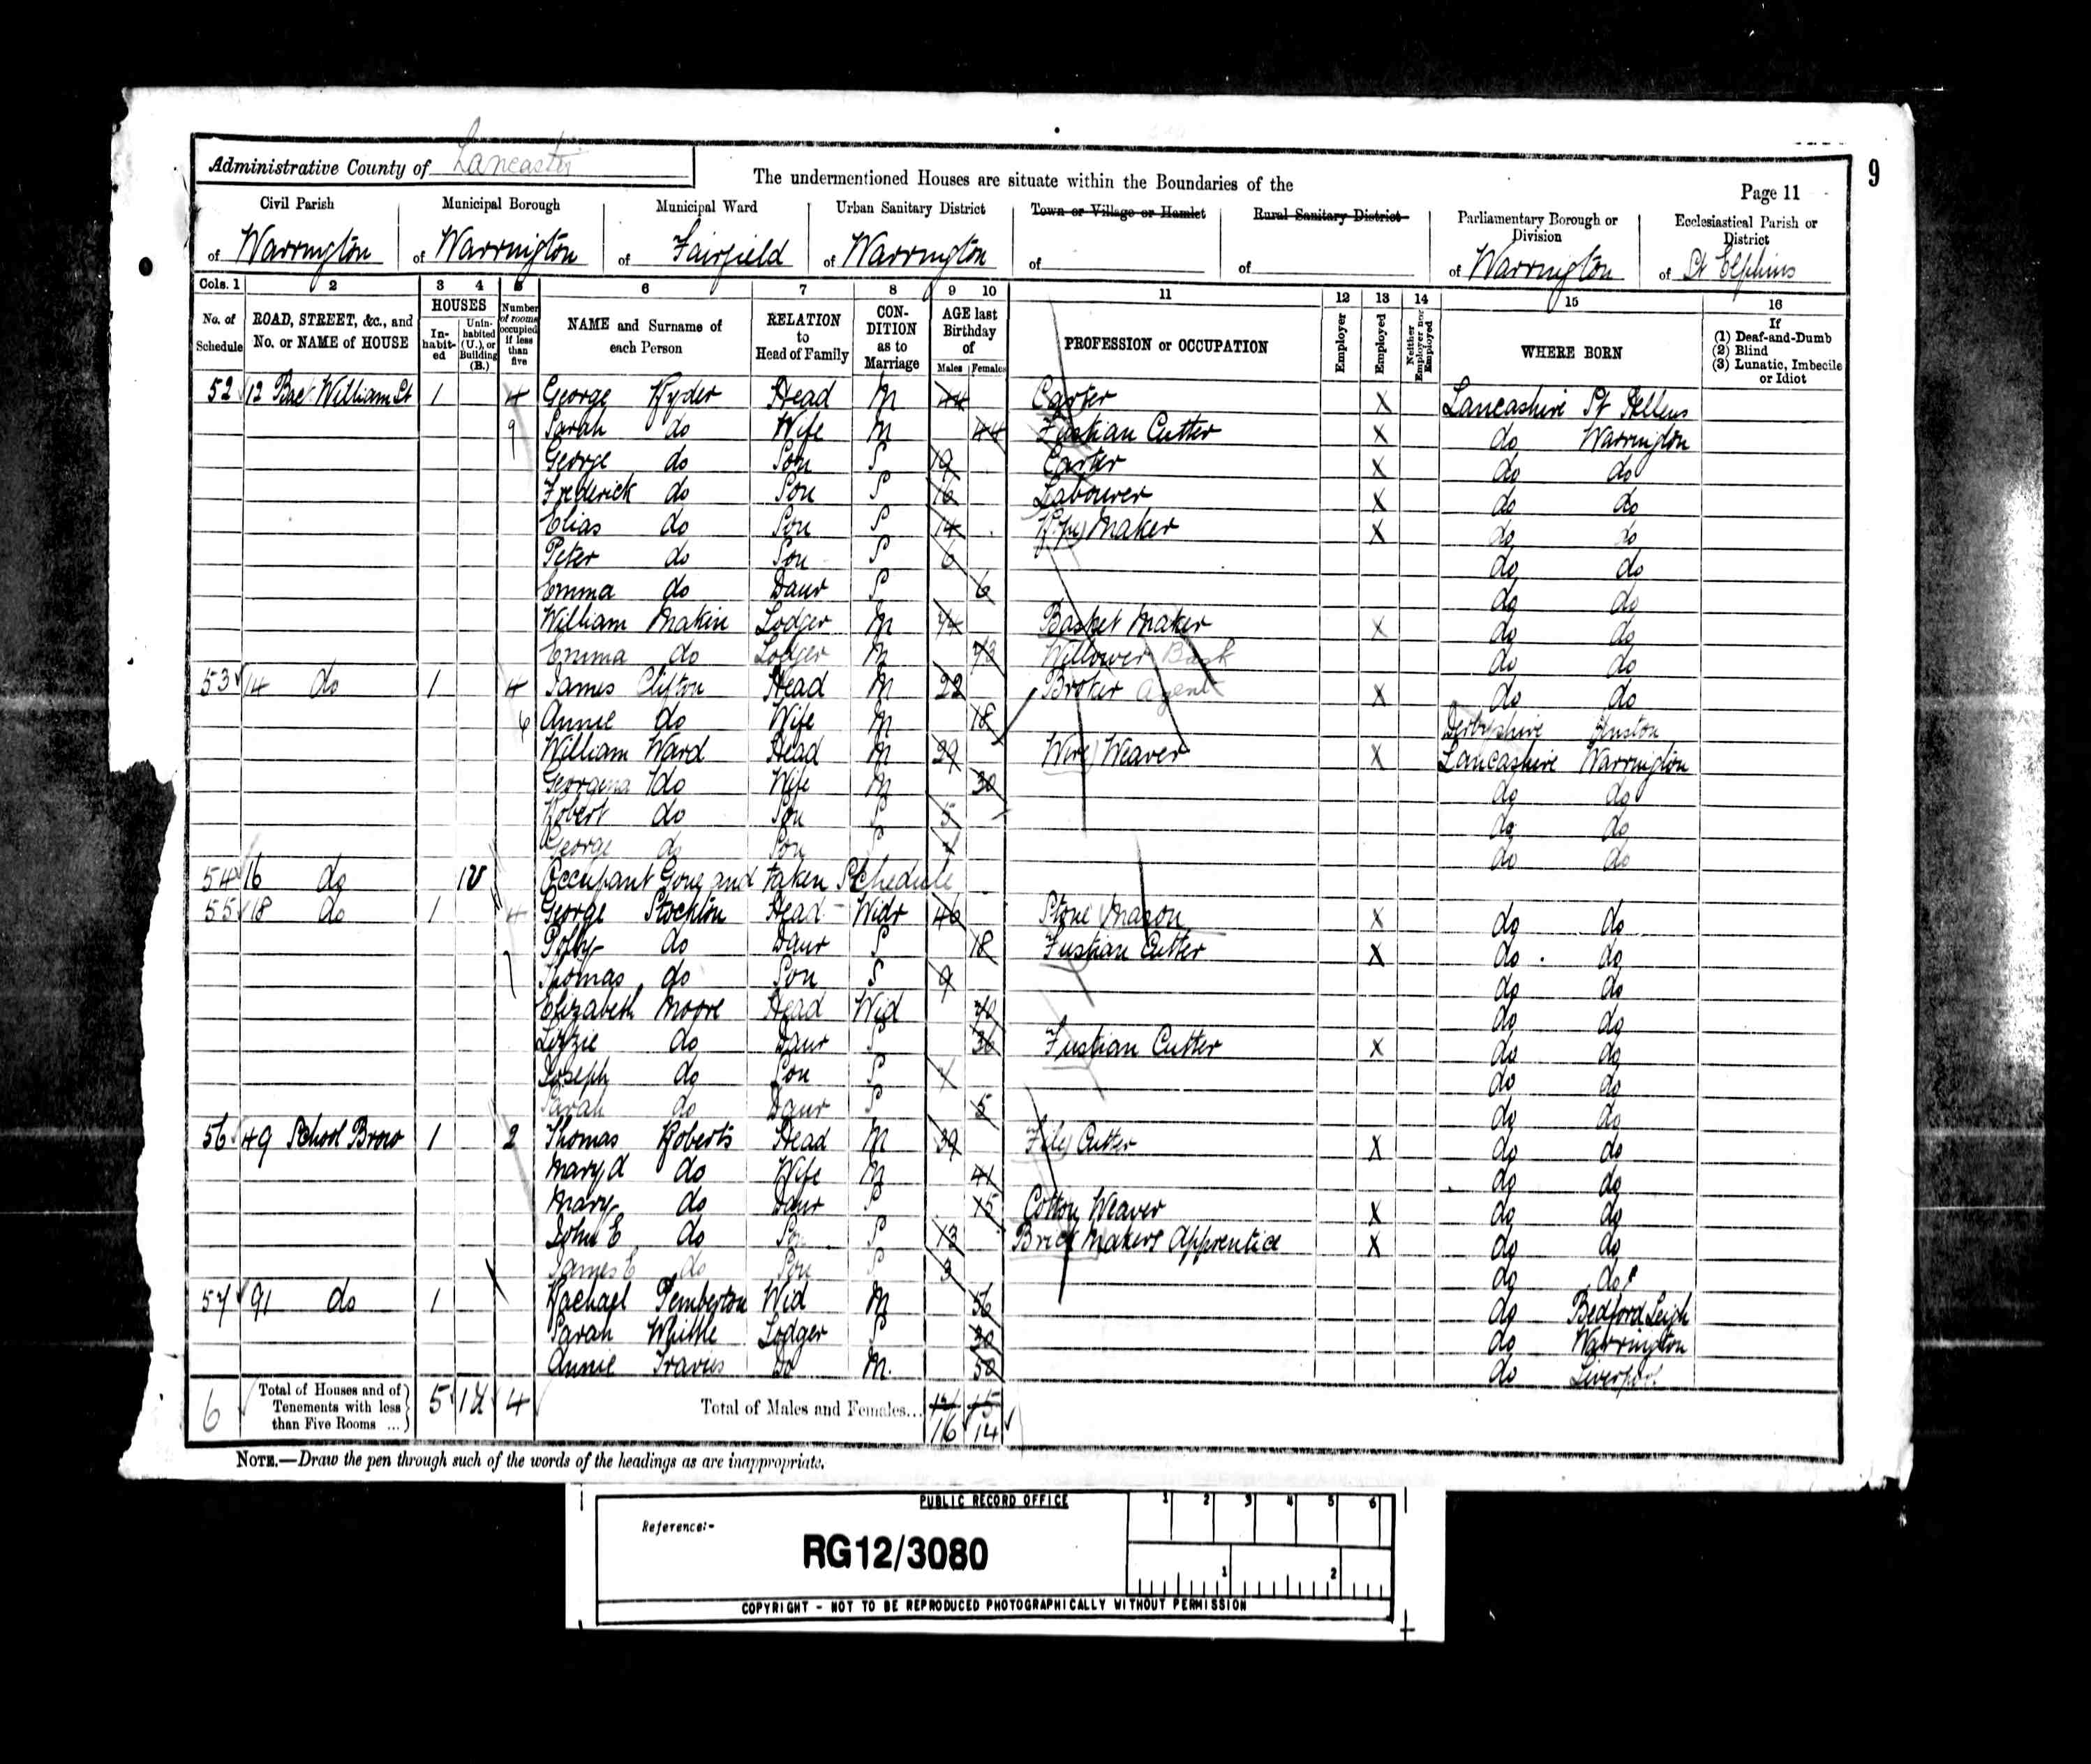 Administrative County of Lancaster
The undermentioned Houses are situate within the Boundaries of the
Page 11
9
Civil Parish of Warrington
Municipal Borough of Warrington
Municipal Ward of Fairfield
Urban Sanitary District of Warrington
Town or Village or Hamlet of
Rural Sanitary District of
Parliamentary Borough or Division of Warrington
Ecclesiastical Parish or District of St Elphins
Cols. 1 2 3 4 5 6 7 8 9 10 11 12 13 14 15 16
No. of Schedule
ROAD, STREET, &c., and No. or NAME of HOUSE
HOUSES
In-habit-ed
Unin-habited (U.), or Building (B.)
Number of rooms occupied if less than five
NAME and Surname of each Person
RELATION to Head of Family
CON-DITION as to Marriage
AGE last Birthday of
Males Females
PROFESSION or OCCUPATION
Employer
Employed
Neither Employer nor Employed
WHERE BORN
If (1) Deaf-and-Dumb (2) Blind (3) Lunatic, Imbecile or Idiot
52 12 Bac William St 1 4 George Ryder Head M 44 Carter X Lancashire St Hellens
9 Sarah do Wife M 44 Fustian Cutter X do Warrington
George do Son S 19 Carter X do do
Frederick do Son S 16 Labourer X do do
Elias do Son S 14 Maker X do do
Peter do Son S 6 do do
Emma do Daur S 6 do do
William Makin Lodger M 74 Basket Maker X do do
Emma do Lodger M 73 Willower Bask do do
53 14 do 1 4 James Clifton Head M 22 Broker Agent X do do
6 Annie do Wife M 18 Derbyshire
William Ward Head M 29 Wire Weaver X Lancashire Warrington
Georgena do Wife M 30 do do
Robert do Son S 5 do do
George do Son S do do
54 16 do 1U Occupant Gone and taken Schedule
55 18 do 1 4 George Stockton Head Widr 46 Stone Mason X do do
Polly do Daur S 18 Fustian Cutter X do do
7 Thomas do Son S 9 do do
Elizabeth Moore Head Wid 70 do do
Lizzie do Daur S 36 Fustian Cutter X do do
Joseph do Son S do do
Sarah do Daur S 5 do do
56 49 School Brow 1 2 Thomas Roberts Head M 39 File Cutter X do do
Mary A do Wife M 41 do do
Mary do Daur S 15 Cotton Weaver X do do
John E do Son S 13 Brick Makers Apprentice X do do
James E do Son S 3 do do
57 91 do 1 Rachael Pemberton Wid M 56 do Bedford Leigh
Sarah Whittle Lodger S 20 do Warrington
Annie Travis Do M 50 do Liverpool
6 Total of Houses and of Tenements with less than Five Rooms ... 5 1U 4 Total of Males and Females... 15
16 14
NOTE.—Draw the pen through such of the words of the headings as are inappropriate.
PUBLIC RECORD OFFICE
1 2 3 4 5 6
Reference:-
RG12/3080
1 2
COPYRIGHT - NOT TO BE REPRODUCED PHOTOGRAPHICALLY WITHOUT PERMISSION